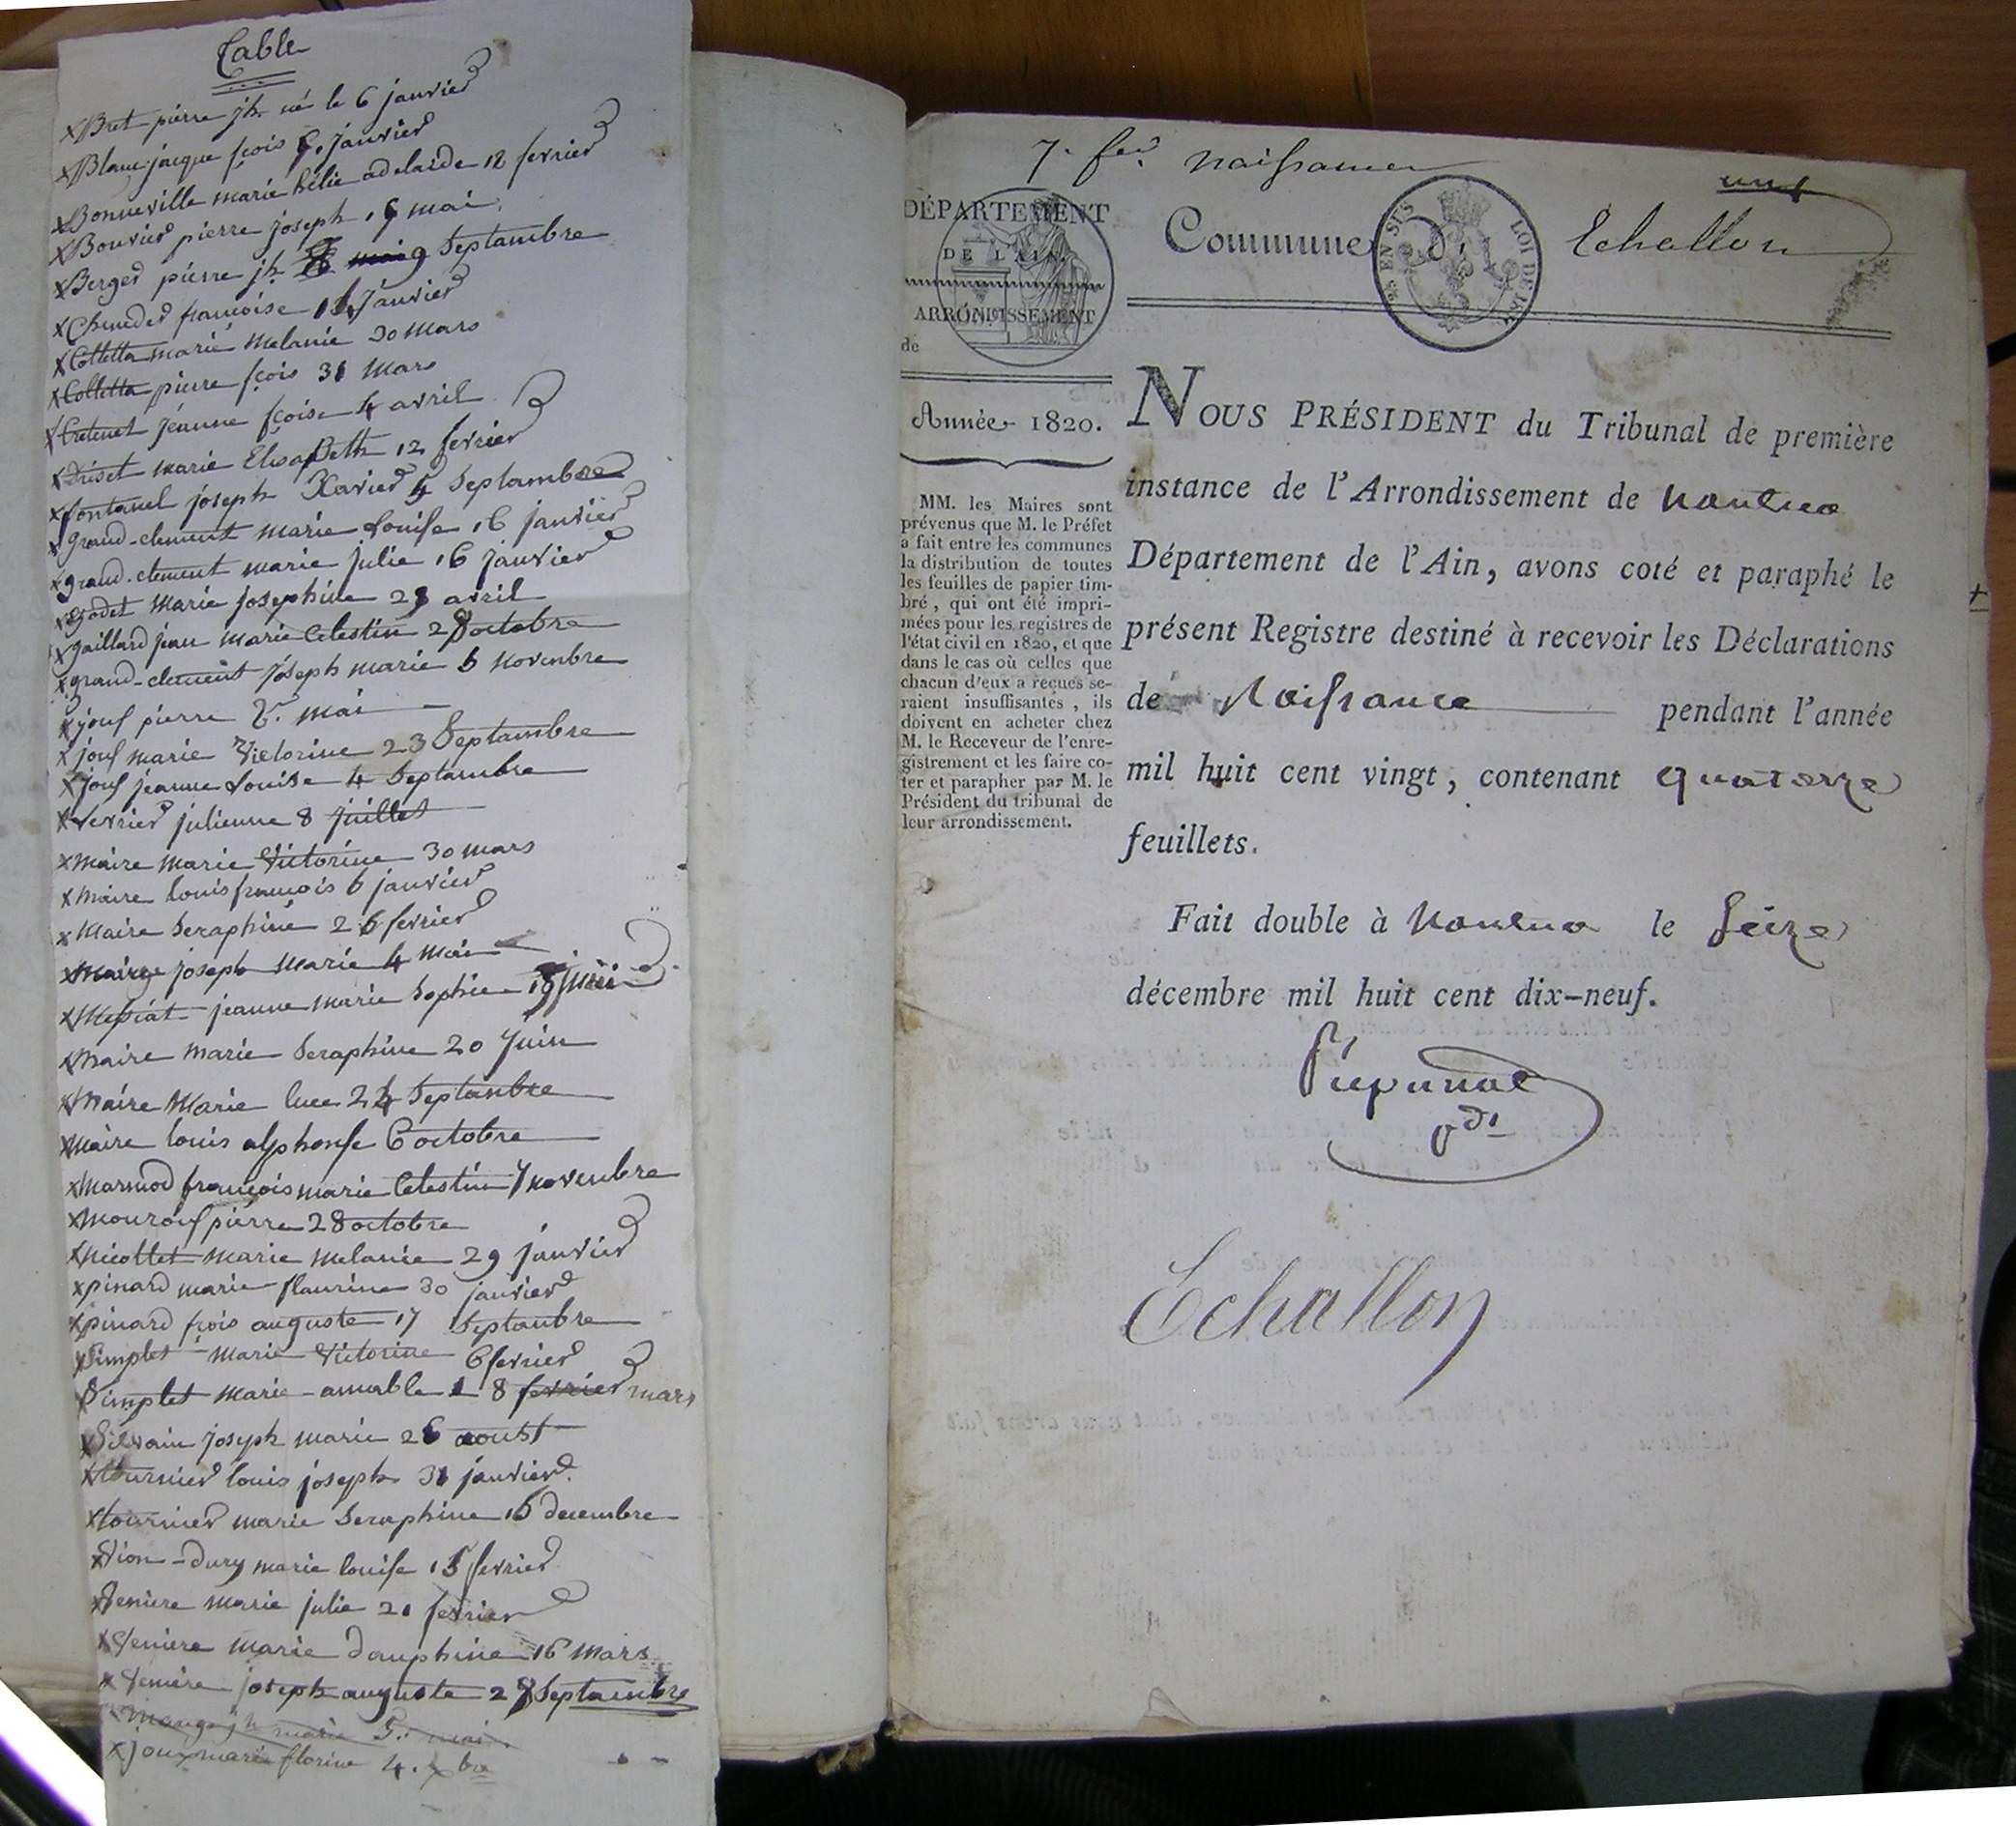 Table
x Bret pierre jh. né le 6 janvier
x Blanc jacque fçois janvier
x Bonneville marie adelaide 12 fevrier
x Bouvier pierre joseph 19 mai
x Berger pierre jh 9 Septambre
x françoise janvier
x Colletta marie Melanie 30 Mars
x Colletta pierre fçois 31 Mars
x Cretenet jeanne fçoise 4 avril
x Driset marie Elisabeth 12 fevrier
x fontanel joseph Xavier Septambre
x grand-clement marie Louise 16 janvier
x grand-clement marie julie 16 janvier
x godet Marie josephine avril
x gaillard jean marie Celestin 28 octobre
x grand-clement joseph marie 6 Novenbre
x jouf pierre mai
x jouf marie Victorine 23 Septambre
x jouf jeanne Louise 4 Septambre
x julienne 8 juillet
x maire marie Victorine 30 mars
x maire Louis françois 6 janvier
x Maire Seraphine 26 fevrier
x Maire joseph Marie 4 Mai
x Messiat jeanne Marie Sophie juin
x Maire Marie Seraphine 20 Juin
x Maire Marie luce 24 Septanbre
x Maire louis alphonse 6 octobre
x Marmod françois marie Celestin 7 novenbre
x Mourouf pierre 28 octobre
x Nicollet Marie Melanie 29 janvier
x pinard marie flaurine 30 janvier
x pinard frois auguste 17 Septanbre
x Simplet Marie Victorine 6 fevrier
x Simplet Marie amable 8 fevrier mars
x Silvain Joseph marie 26 aoust
x tournier louis joseph 31 janvier
x tournier marie Seraphine 16 decembre
x Vion-Dury marie louise 15 fevrier
x Veniere Marie julie 21 fevrier
x Veniere Marie Dauphine 16 Mars
x Veniere joseph auguste 28 Septambre
jh marie 5. mai
x joux marie florine 4. xbre
7. fer naissances
une
DÉPARTEMENT
DE L'AIN
ARRONDISSEMENT
de
Commune d' Echallon
Année 1820.
MM. les Maires sont
prévenus que M. le Préfet
a fait entre les communes
la distribution de toutes
les feuilles de papier tim-
bré, qui ont été impri-
mées pour les registres de
l'état civil en 1820, et que
dans le cas où celles que
chacun d'eux a reçues se-
raient insuffisantes, ils
doivent en acheter chez
M. le Receveur de l'enre-
gistrement et les faire co-
ter et parapher par M. le
Président du tribunal de
leur arrondissement.
NOUS PRÉSIDENT du Tribunal de première
instance de l'Arrondissement de Nantua
Département de l'Ain, avons coté et paraphé le
présent Registre destiné à recevoir les Déclarations
de Naissance pendant l'année
mil huit cent vingt, contenant quatorze
feuillets.
Fait double à Nantua le Seize
décembre mil huit cent dix-neuf.
Echallon